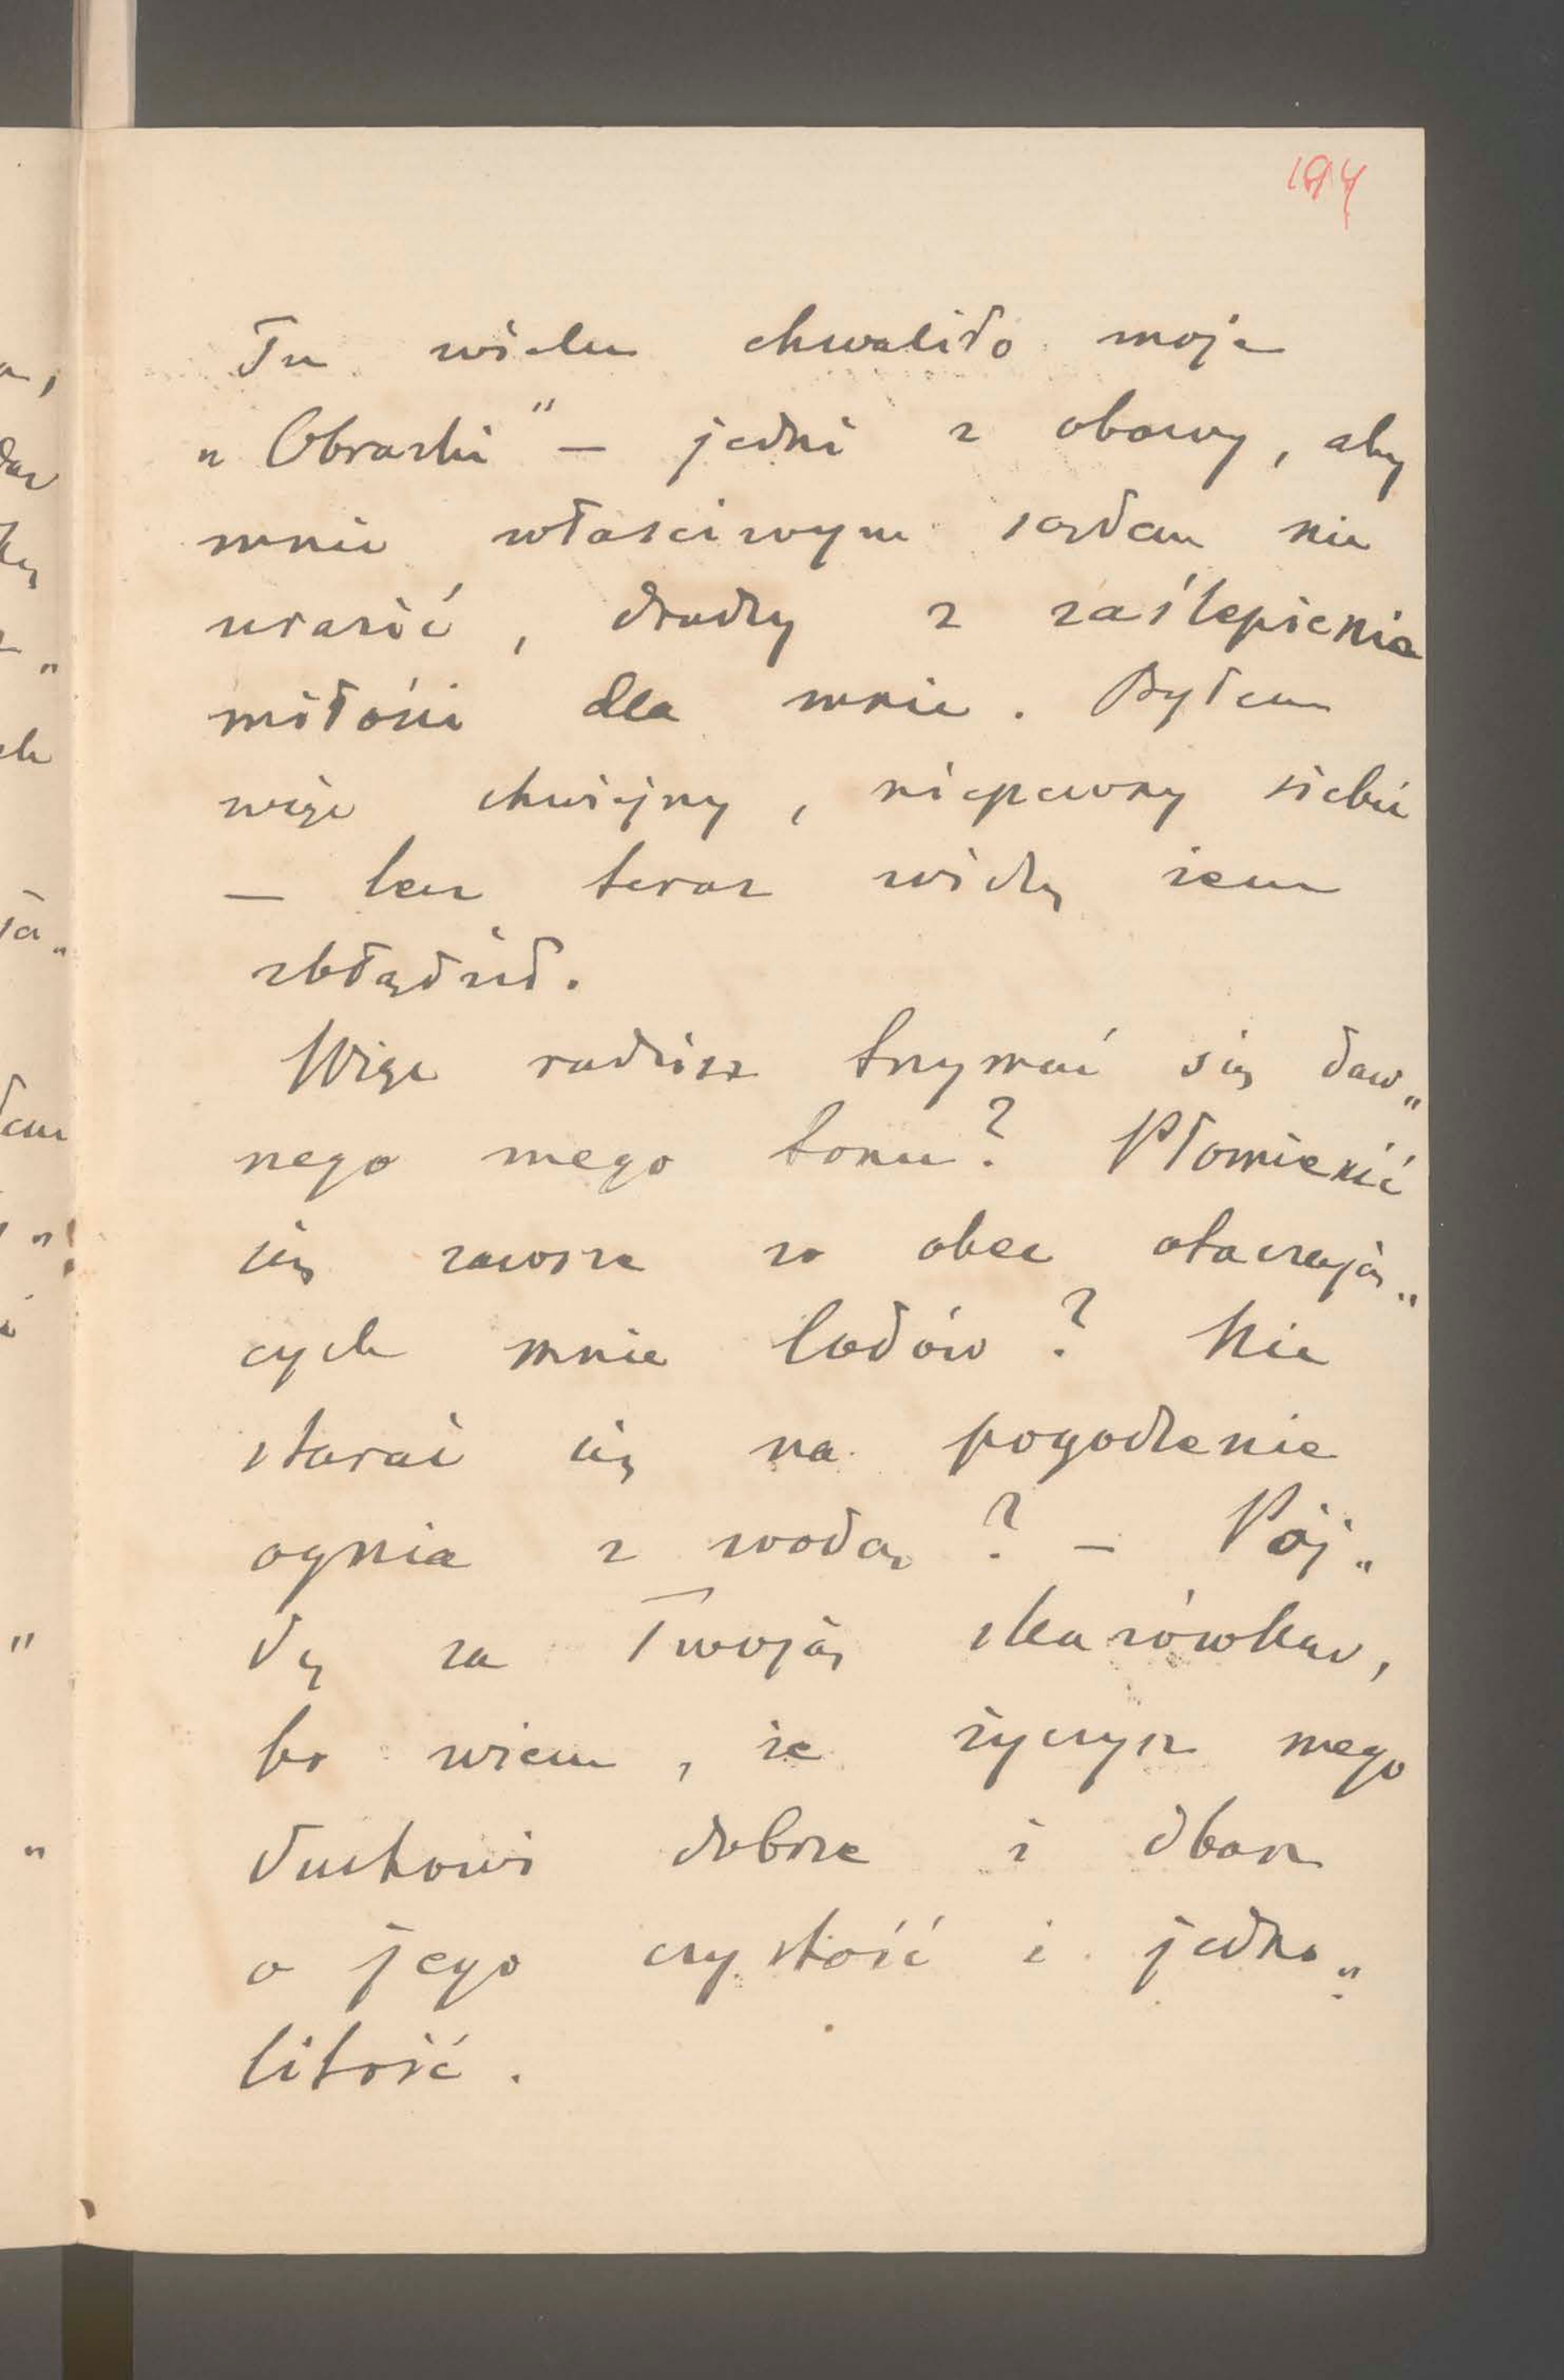 194
Tu wielu chwaliło moje
„Obrazki" – jedni z obawy, aby
mnie właściwym sądem nie
urazić, drudzy z zaślepienia
miłości dla mnie. Byłem
więc chwiejny, niepewny siebie
– lecz teraz widzę żem
zbłądził.
Więc radzisz trzymać się daw„
nego mego tonu? Płomienić
się zawsze w obec otaczają„
cych mnie lodów? Nie
starać się na pogodzenie
ognia z wodą? – Pój„
dę za Twoją skazówką,
bo wiem, że życzysz mego
duchowi dobrze i dbasz
o jego czystość i jedno„
litość.